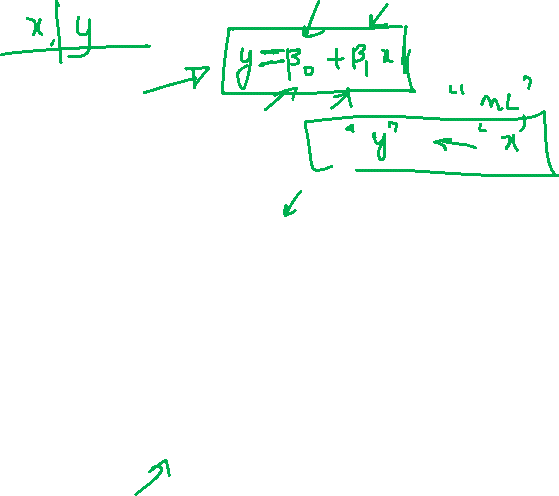 x, y
y = β₀ + β₁ x
"ML"
"y" ← "x"